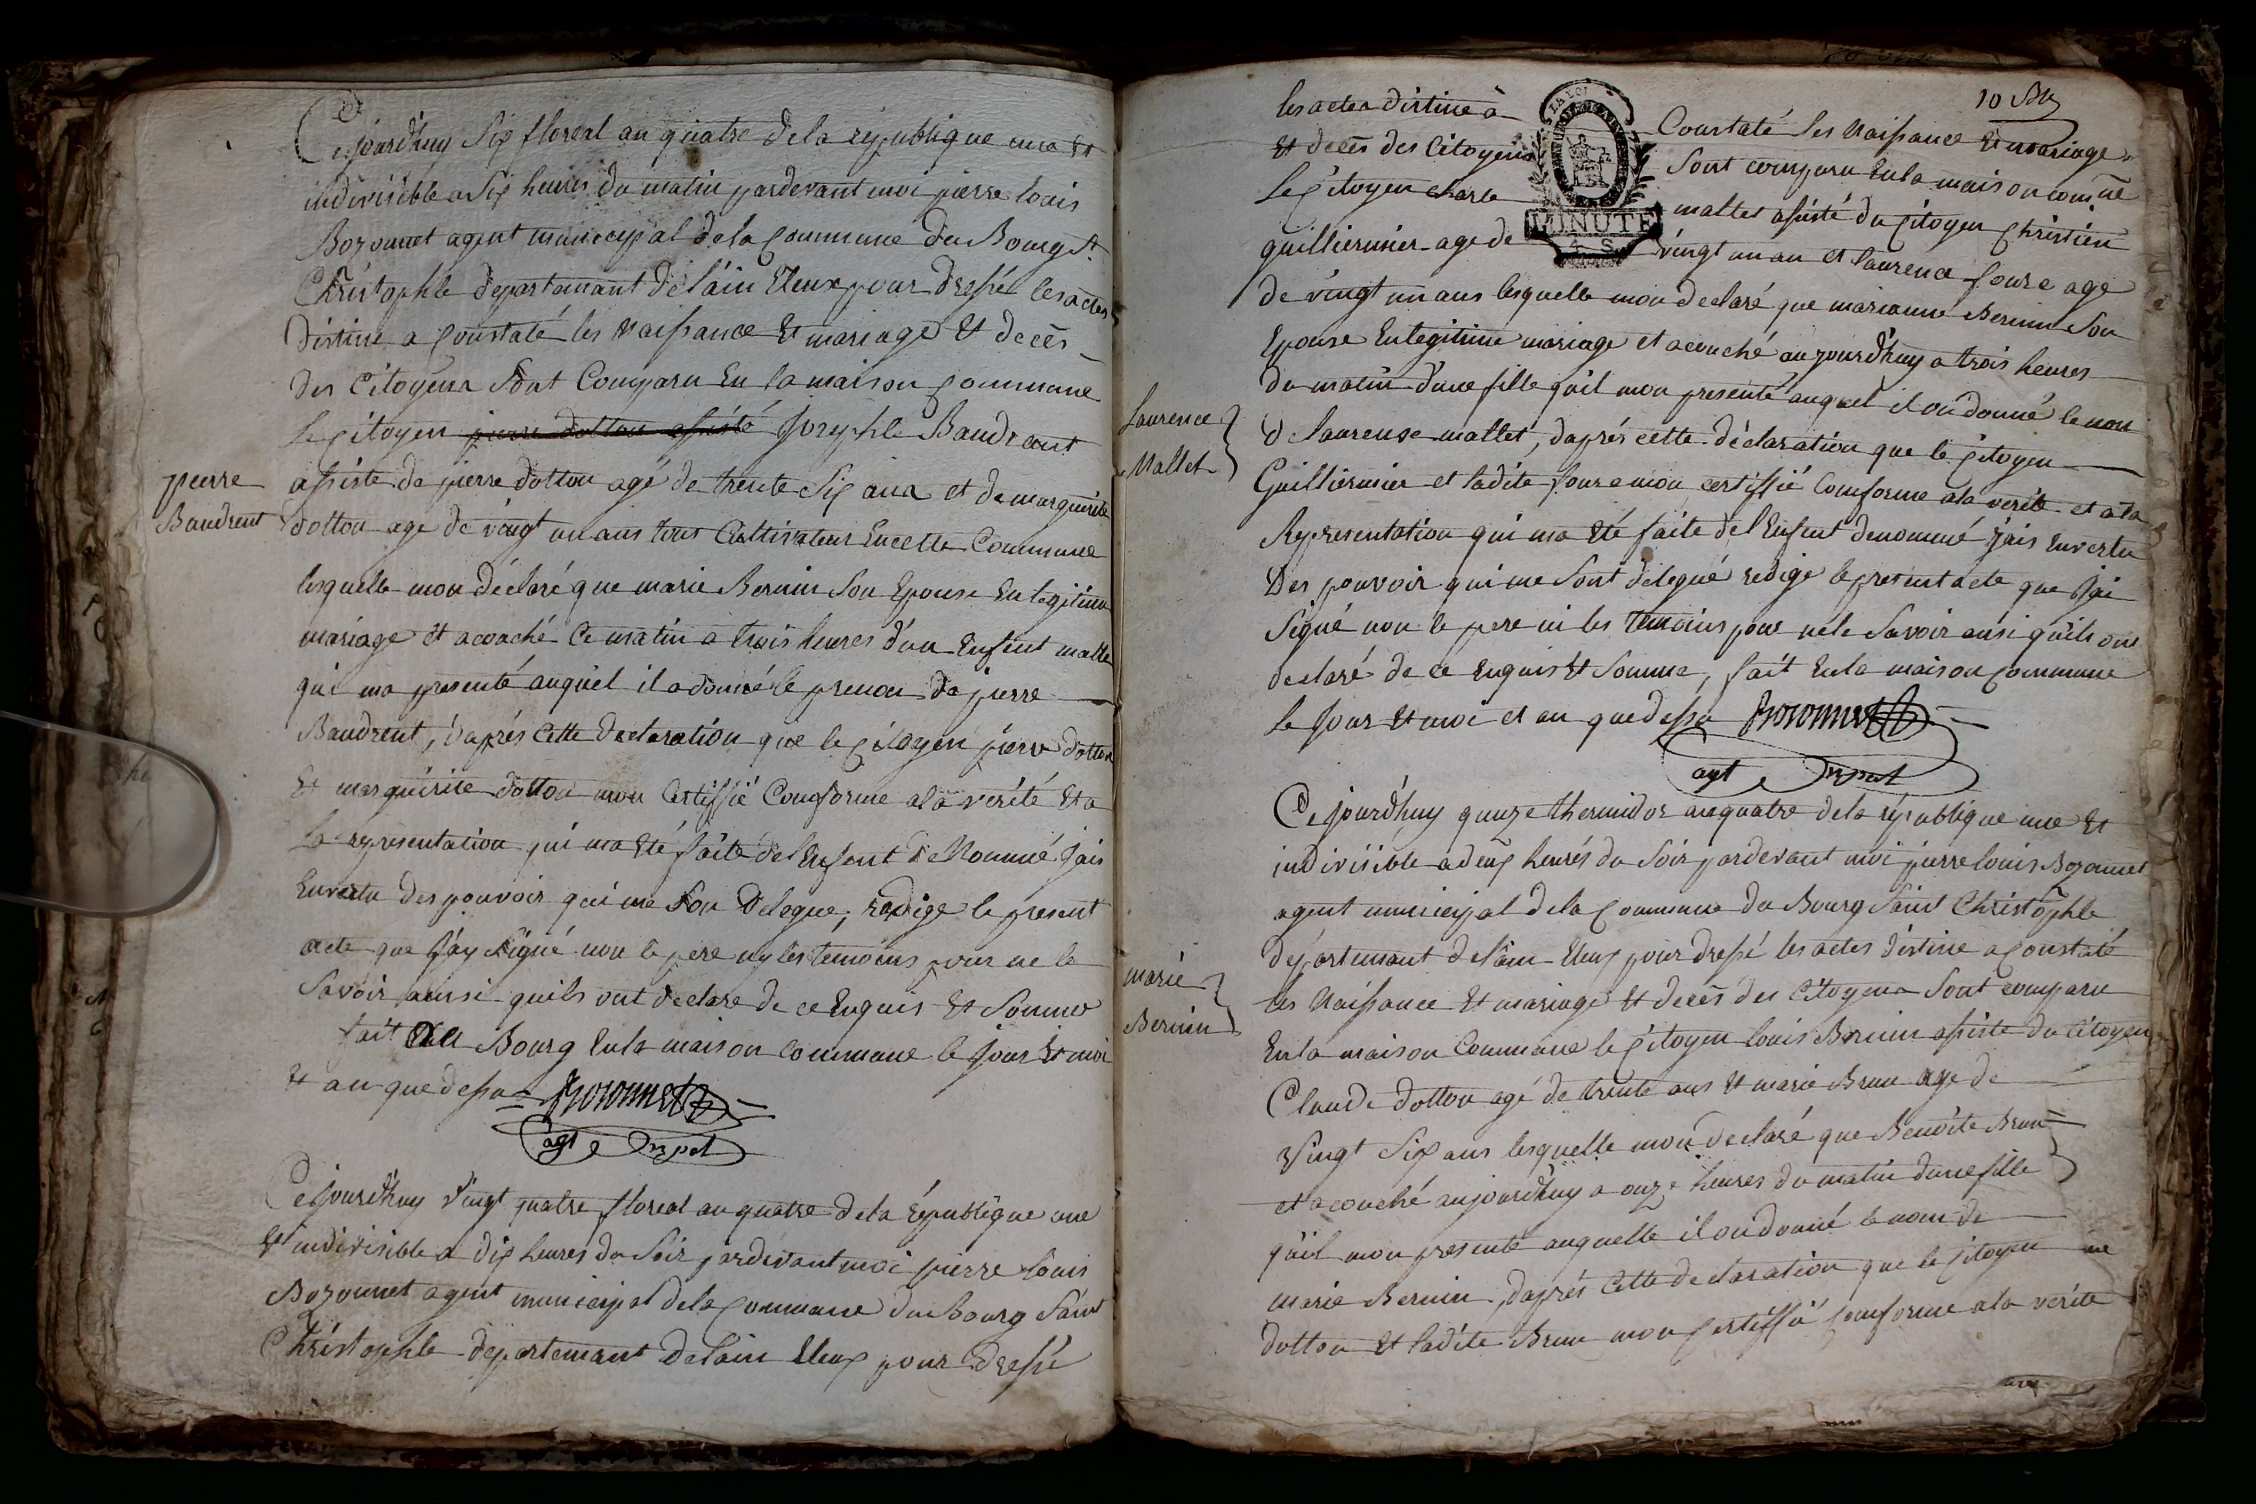 Cejourdhuy Six floreal an quatre dela republique une Et
indivisible a Six heures du matin pardevant moi pierre louis
Bozonnet agent municipal de la Commune du Bourg St
Christophle departemant de l'ain Eleux pour dressé les actes
distiné a Constaté les Naissance Et mariage Et decés
des Citoyens Sont Comparu En la maison Commune
Le Citoyen pierre dotton assisté Josephle Baudrant
assiste de pierre dotton agé de trente Six ans et de marguirite
dotton age de vingt un ans tous Cultivateur En cette Commune
lesquelle mon déclaré que marie Bernin Son Epouse En legitime
mariage Et acouché Ce matin a trois heures d'un Enfent malle
qui ma presenté auquel il a donné le prenon de pierre
pierre
Baudrent
Baudrent, daprés Cette declaration que le Citoyen pierre dotton
Et marguirite dotton mon Certiffié Comforme ala verité Et a
La representation qui ma Eté faite de l'Enfent denommé Jais
Envertu des pouvoir qui me Son delegue, redige le present
acte que J'ay Signé non le pere ny les temoins pour ne le
Savoir ainsi quils ont declare de ce Enquis Et Sommé
fait au Bourg Enla maison commune le Jour Et moi
Et an que dessu Bozonnet
agt mpal
Cejourdhuy vingt quatre floreal an quatre dela République une
Et indivisible a dix heures du Soir pardevant moi pierre louis
Bozonnet agent municipal dela Commune du bourg Saint
Christophle departemant delain Eleux pour dressé
10
les actes distiné à Constaté les Naissance Et mariage
Et decés des Citoyens Sont comparu Enla maison comñe
Le Citoyen charle mallet assisté du Citoyen Christien
guilliermier age de vingt un an et laurence foure age
LA LOI
MINUTE
4 S
de vingt un ans lesquelle mon declaré que marianne Bernin Son
Epouse En legitime mariage et acouché aujourdhuy a trois heures
du matin d'une fille quil mon presenté auquel il on donné le non
de laurense mallet, daprés cette déclaration que le Citoyen
Laurence
Mallet
Guilliermier et ladite foure mon certiffié Comforme ala verité et a la
Representation qui ma Eté faite de l'Enfent denommé Jais Envertu
Des pouvoir qui me Sont delegué redigé le present acte que Jai
Signé non le pere ni les temoins pour nele Savoir ansi quils on
declaré de ce Enquis Et Somme, fait Enla maison Commune
le Jour Et moi et an que dessu Bozonnet
agt mpal
Cejourdhuy quinze thermidor an quatre dela république une Et
indivisible a deux heurés du Soir pardevant moi pierre louis Bozonnet
agent municipal dela Commune du Bourg Saint Christophle
départemant delain Eleux pour dressé les actes distiné a Constaté
les Naissance Et mariage Et decés des Citoyens Sont comparu
Enla maison Commune le Citoyen louis Bernin assiste du Citoyen
marie
Bernin
Claude dotton agé de trente ans Et marie Brun age de
Vingt Six ans lesquelle mon declaré que Benoite Brun
et acouché aujourdhuy a onze heures du matin dune fille
quil mon presenté auquelle il on donné le nom de
marie Bernin, daprés Cette declaration que le Citoyen
dotton Et ladite Brun mon Certiffié Comforme ala vérité